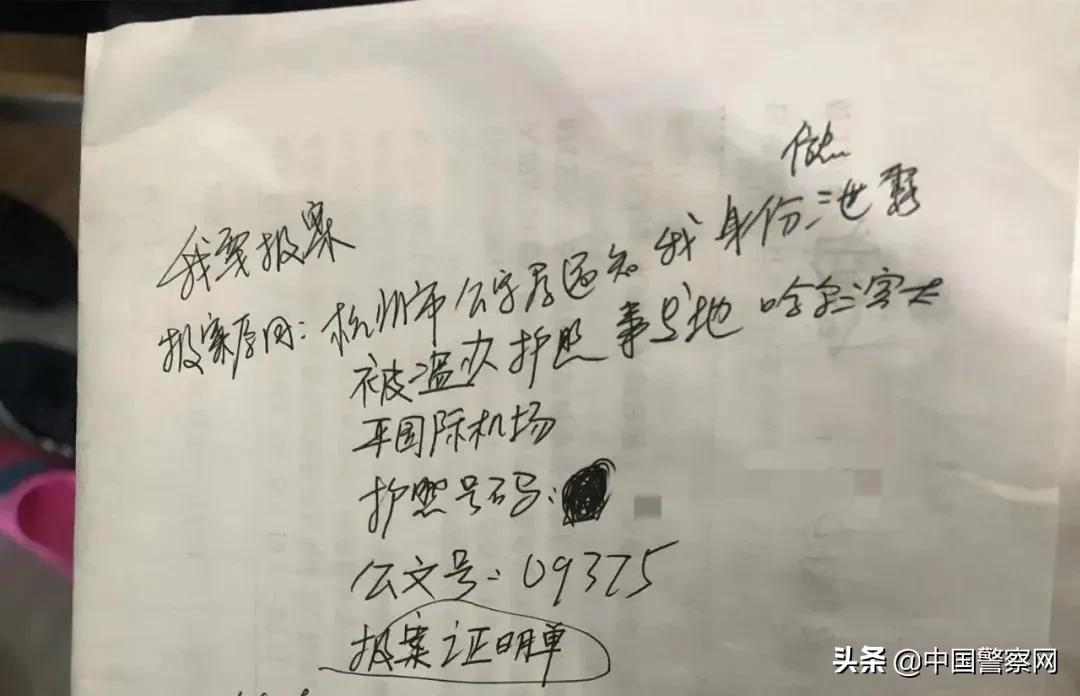 信息
我要报案
报案原因:杭州市公安局通知我身份泄露
被盗办护照 事发地 哈尔滨太
平国际机场
护照号码:
公文号:09375
报案证明单
头条 @中国警察网